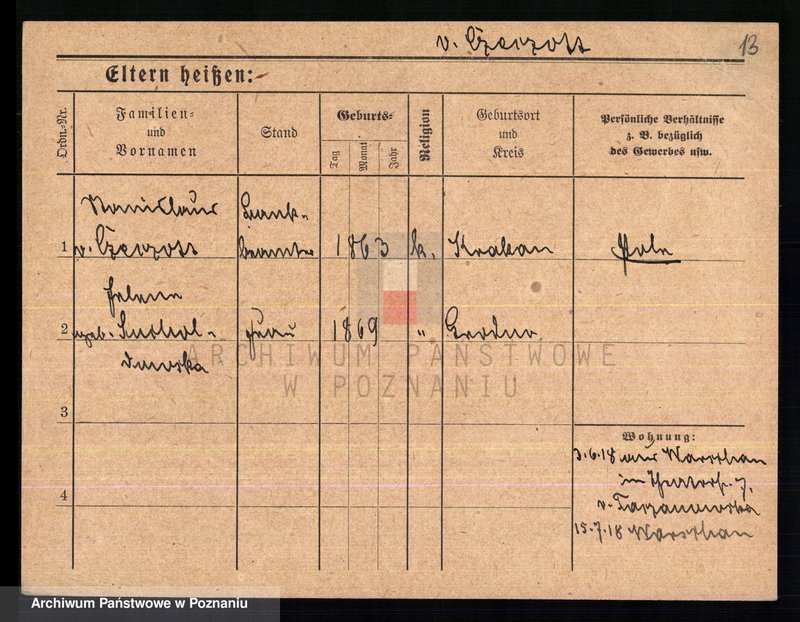 v. Czeczott 13
Eltern heißen:
Ordn.-Nr.
Familien-
und
Vornamen
Stand
Geburts-
Tag
Monat
Jahr
Religion
Geburtsort
und
Kreis
Persönliche Verhältnisse
z. B. bezüglich
des Gewerbes usw.
Stanislaus Bank-
1 v. Czeczott beamter 1863 k. Krakau Pole
Helene
2 geb. - Frau 1869 " Grodno
3
Wohnung:
3.6.18 aus Warschau
im Theaterstr. 7.
4 v.
15.7.18 Warschau
ARCHIWUM PAŃSTWOWE
W POZNANIU
Archiwum Państwowe w Poznaniu